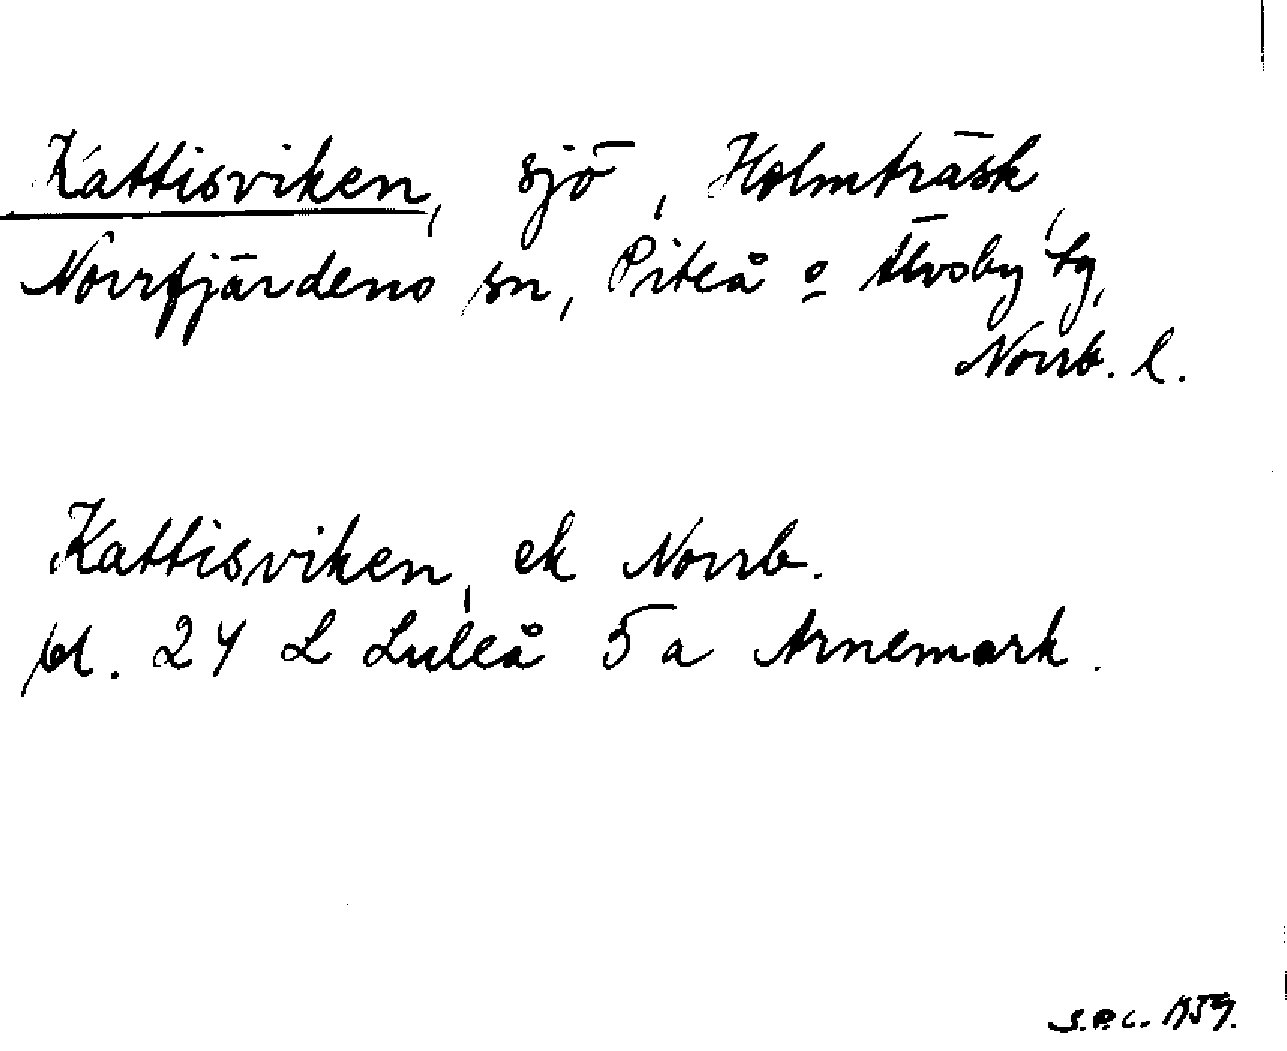 Kattisviken, sjö, Holmträsk,
Norrfjärdens sn, Piteå o Älvsby tg,
Norrb. l.
Kattisviken, ek Norrb.
bl. 24 L Luleå 5a Arnemark.
1959.